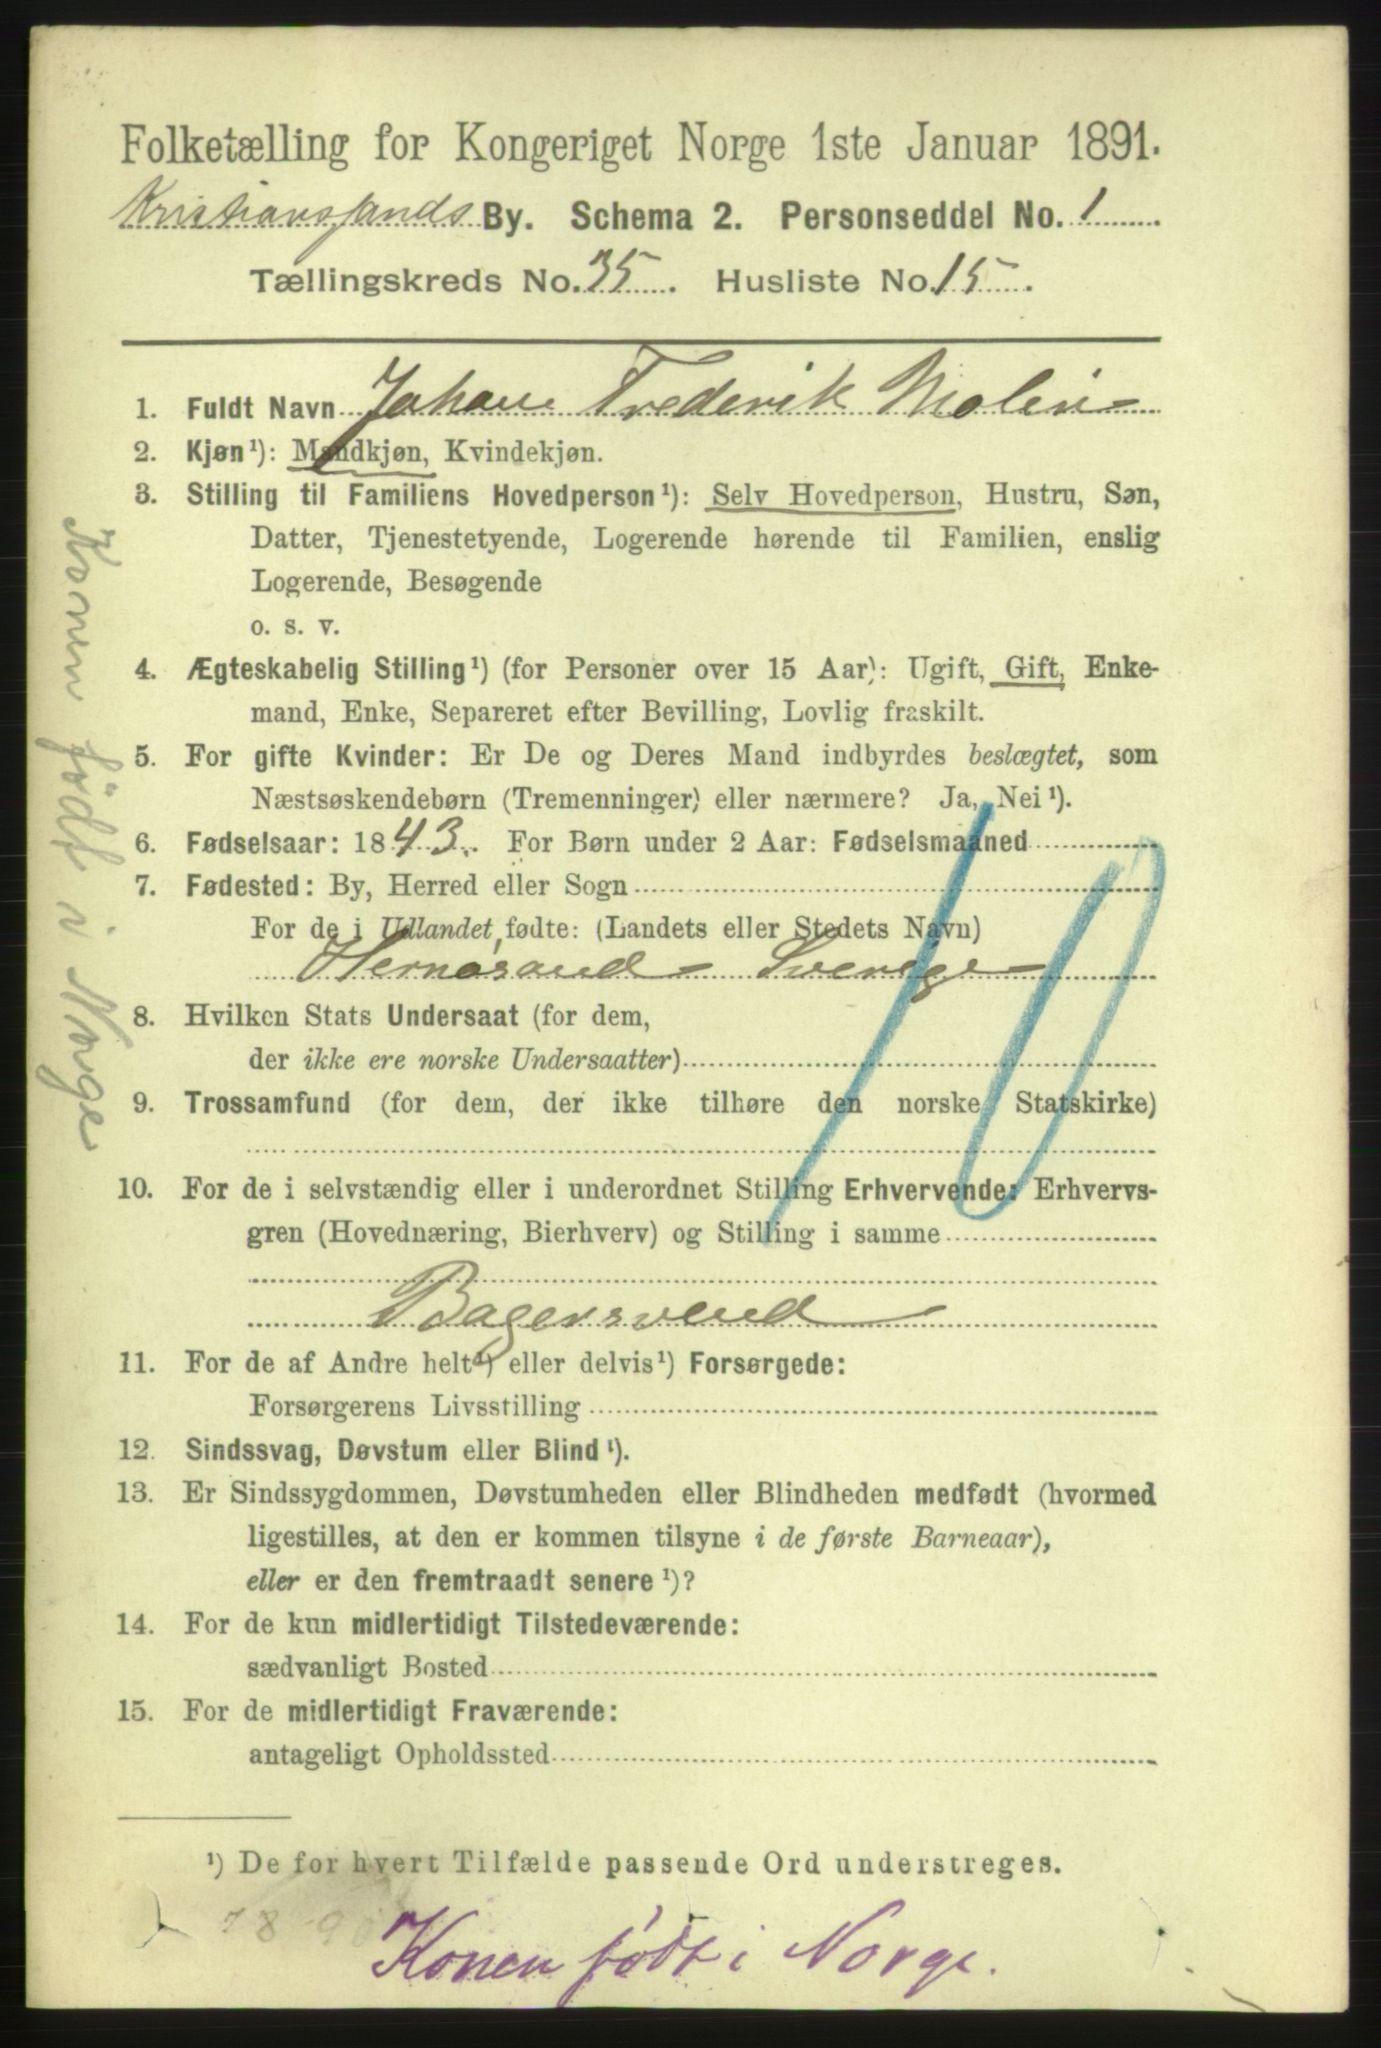 Folketælling for Kongeriget Norge 1ste Januar 1891.
Kristianssands By. Schema 2. Personseddel No. 1
Tællingskreds No. 35. Husliste No. 15.
1. Fuldt Navn Johan Frederik Molin
2. Kjøn¹): Mandkjøn, Kvindekjøn.
3. Stilling til Familiens Hovedperson¹): Selv Hovedperson, Hustru, Søn,
Datter, Tjenestetyende, Logerende hørende til Familien, enslig
Logerende, Besøgende
o. s. v.
4. Ægteskabelig Stilling¹) (for Personer over 15 Aar): Ugift, Gift, Enke-
mand, Enke, Separeret efter Bevilling, Lovlig fraskilt.
5. For gifte Kvinder: Er De og Deres Mand indbyrdes beslægtet, som
Næstsøskendebørn (Tremenninger) eller nærmere? Ja, Nei¹).
6. Fødselsaar: 1843. For Børn under 2 Aar: Fødselsmaaned
7. Fødested: By, Herred eller Sogn
For de i Udlandet fødte: (Landets eller Stedets Navn)
Hernøsand - Sverige
8. Hvilken Stats Undersaat (for dem,
der ikke ere norske Undersaatter)
9. Trossamfund (for dem, der ikke tilhøre den norske Statskirke)
10. For de i selvstændig eller i underordnet Stilling Erhvervende: Erhvervs-
gren (Hovednæring, Bierhverv) og Stilling i samme
Bagersvend
11. For de af Andre helt¹) eller delvis¹) Forsørgede:
Forsørgerens Livsstilling
12. Sindssvag, Døvstum eller Blind¹).
13. Er Sindssygdommen, Døvstumheden eller Blindheden medfødt (hvormed
ligestilles, at den er kommen tilsyne i de første Barneaar),
eller er den fremtraadt senere¹)?
14. For de kun midlertidigt Tilstedeværende:
sædvanligt Bosted
15. For de midlertidigt Fraværende:
antageligt Opholdssted
¹) De for hvert Tilfælde passende Ord understreges.
Konen født i Norge.
Konen född i Norge
10